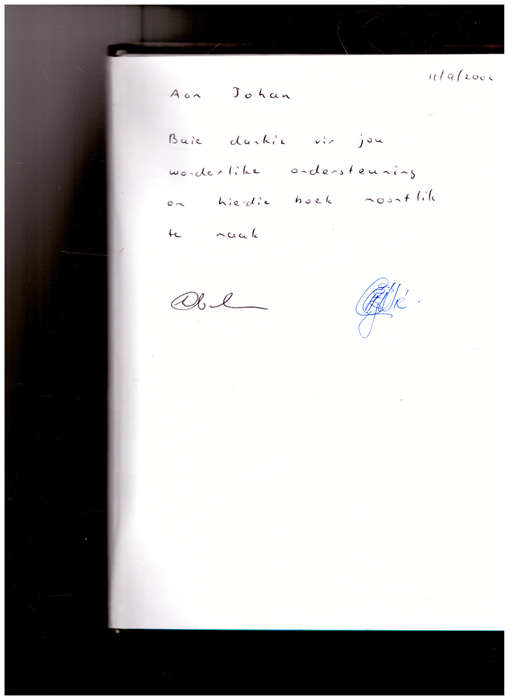 11/9/2002
Aan Johan
Baie dankie vir jou
wonderlike ondersteuning
om hierdie boek moontlik
te maak